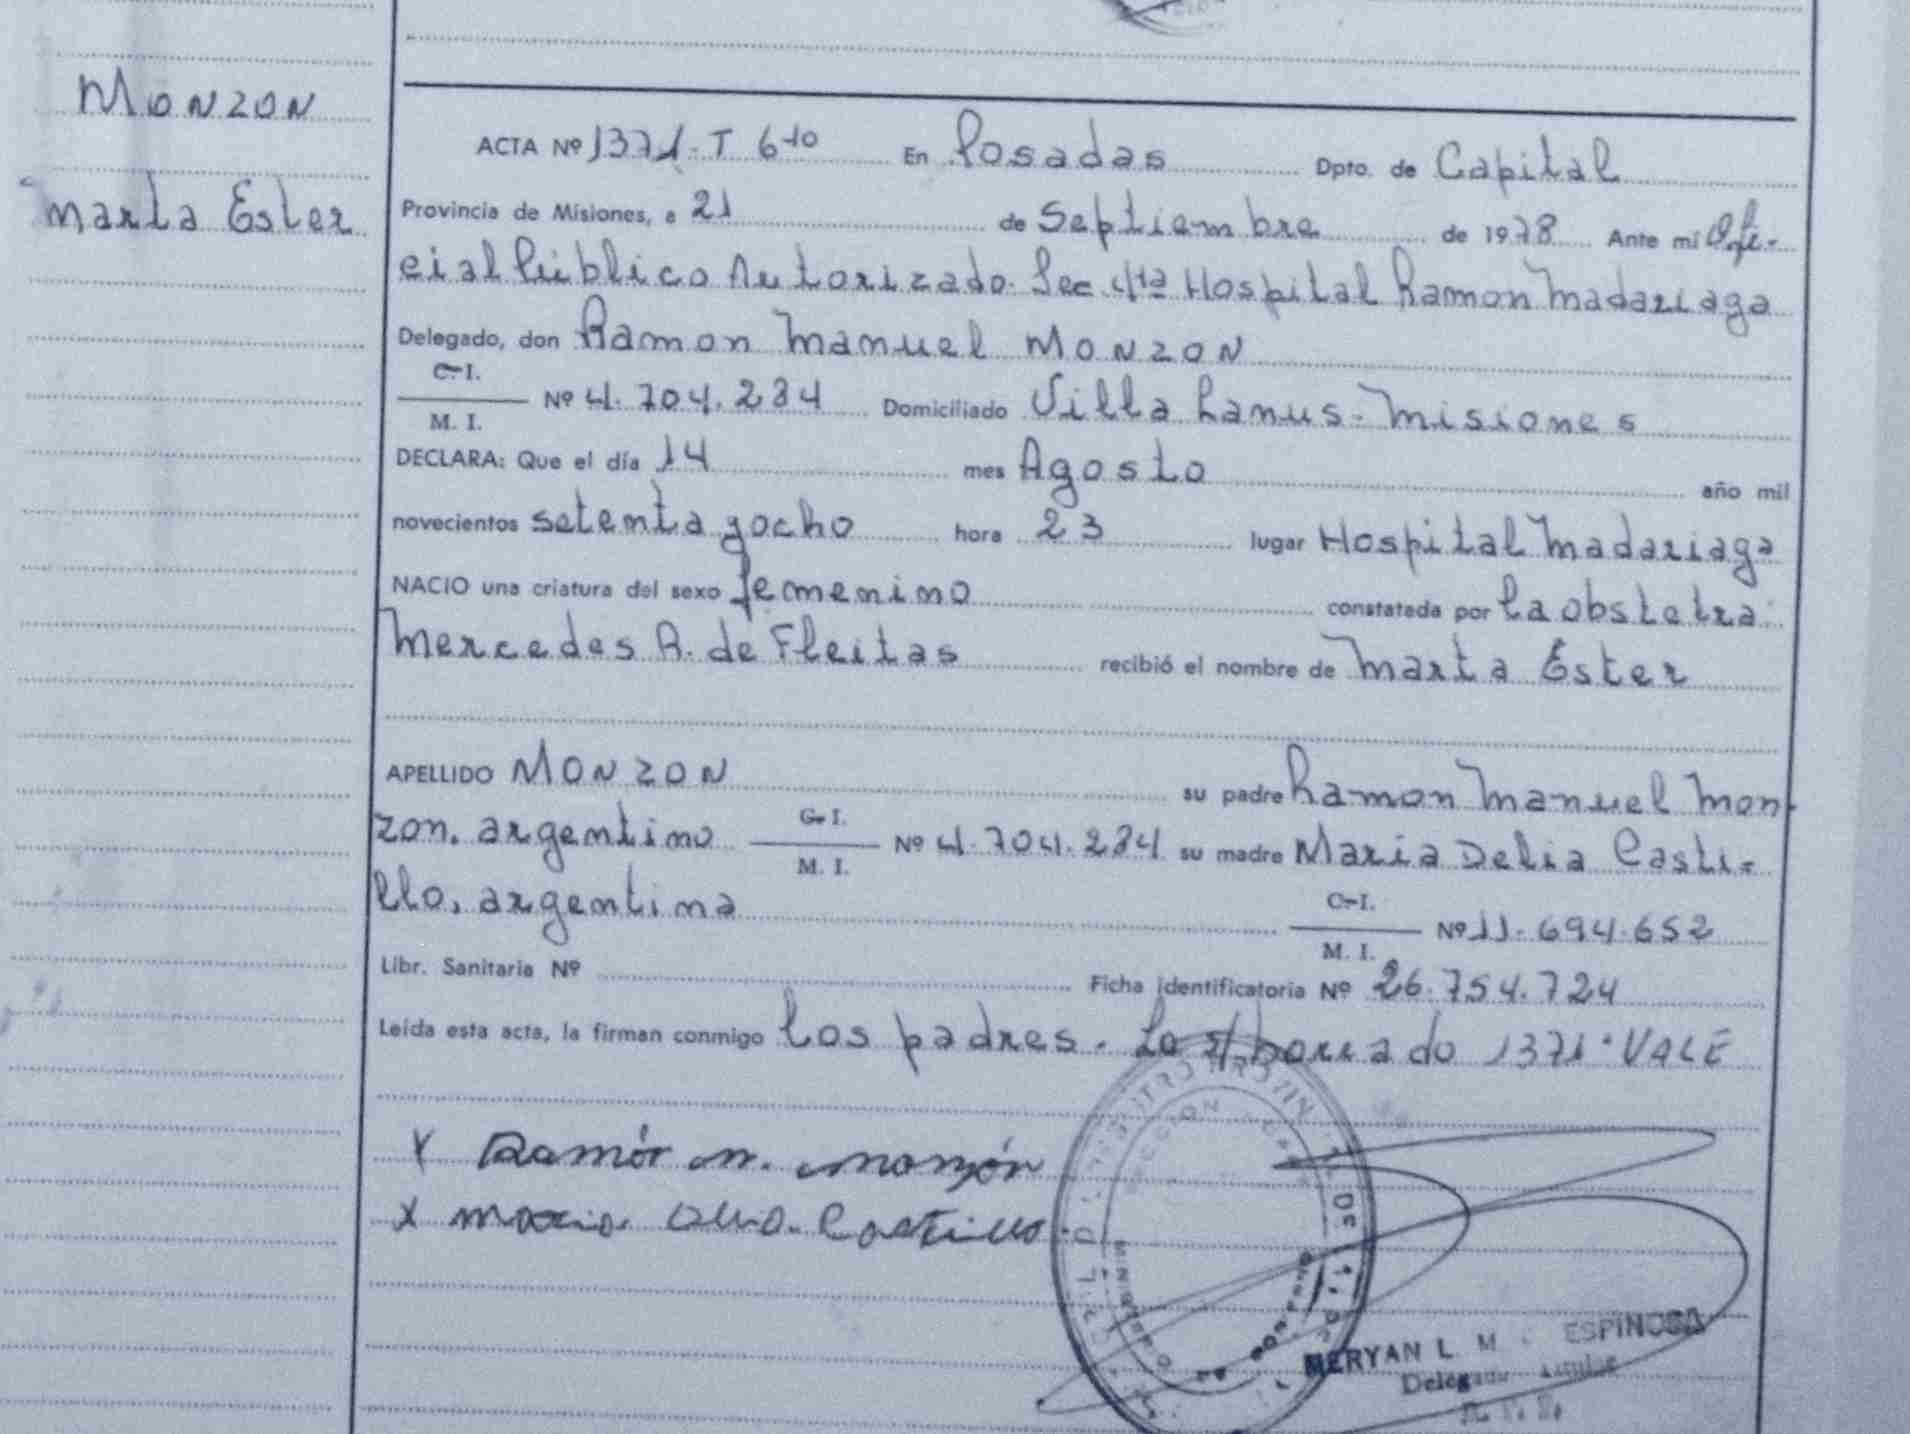 MONZON
Marta Ester
ACTA Nº 1371-T 6to En Posadas Dpto. de Capital
Provincia de Misiones, a 21 de Septiembre de 1978 Ante mi Ofi-
cial Público Autorizado. Sec. 4ta Hospital Ramon Madariaga
Delegado, don Ramon Manuel MONZON
C. I.
M. I. Nº 4.704.234 Domiciliado Villa Lanus-Misiones
DECLARA: Que el día 14 mes Agosto año mil
novecientos setenta y ocho hora 23 lugar Hospital Madariaga
NACIO una criatura del sexo femenino constatada por la obstetra
Mercedes R. de Fleitas recibió el nombre de Marta Ester
APELLIDO MONZON su padre Ramon Manuel Mon-
zon. argentino C. I. M. I. Nº 4.704.234 su madre Maria Delia Casti-
llo, argentina C. I. M. I. Nº 11.694.652
Libr. Sanitaria Nº Ficha identificatoria Nº 26.754.724
Leída esta acta, la firman conmigo los padres. Lo s/borrado 1371·VALE
Ramón M. Monzón
Maria Castillo
MERYAN L. M ESPINOSA
Delegado Titular